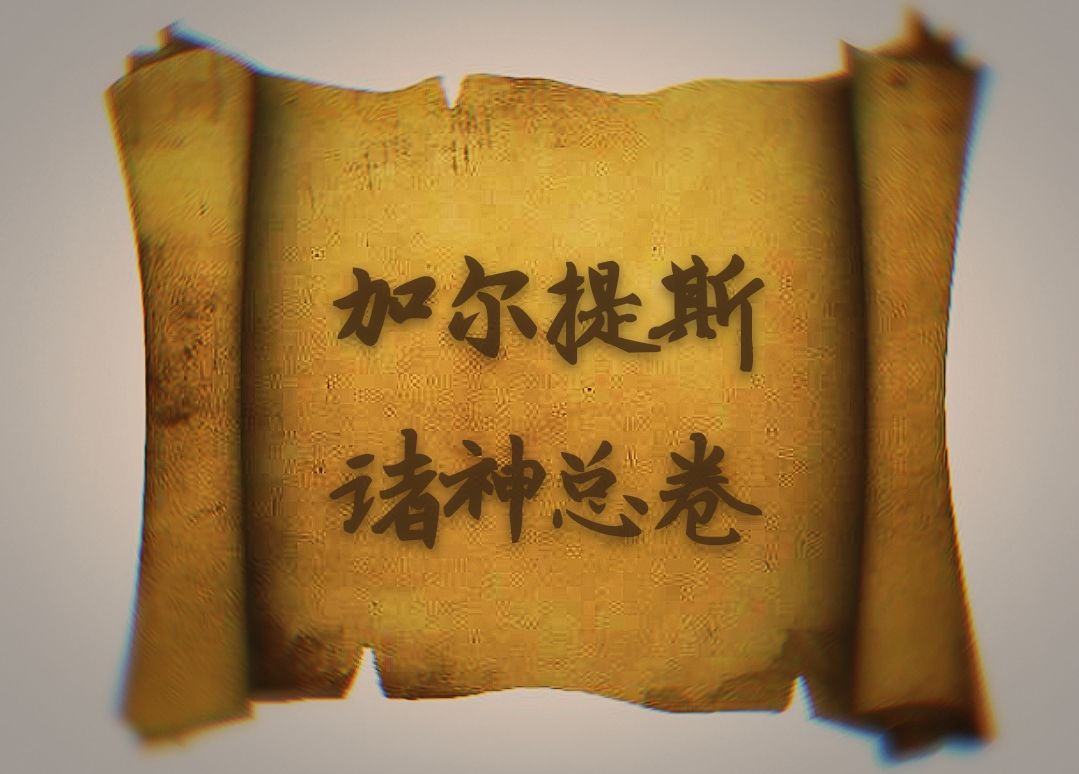 加尔提斯
诸神总卷